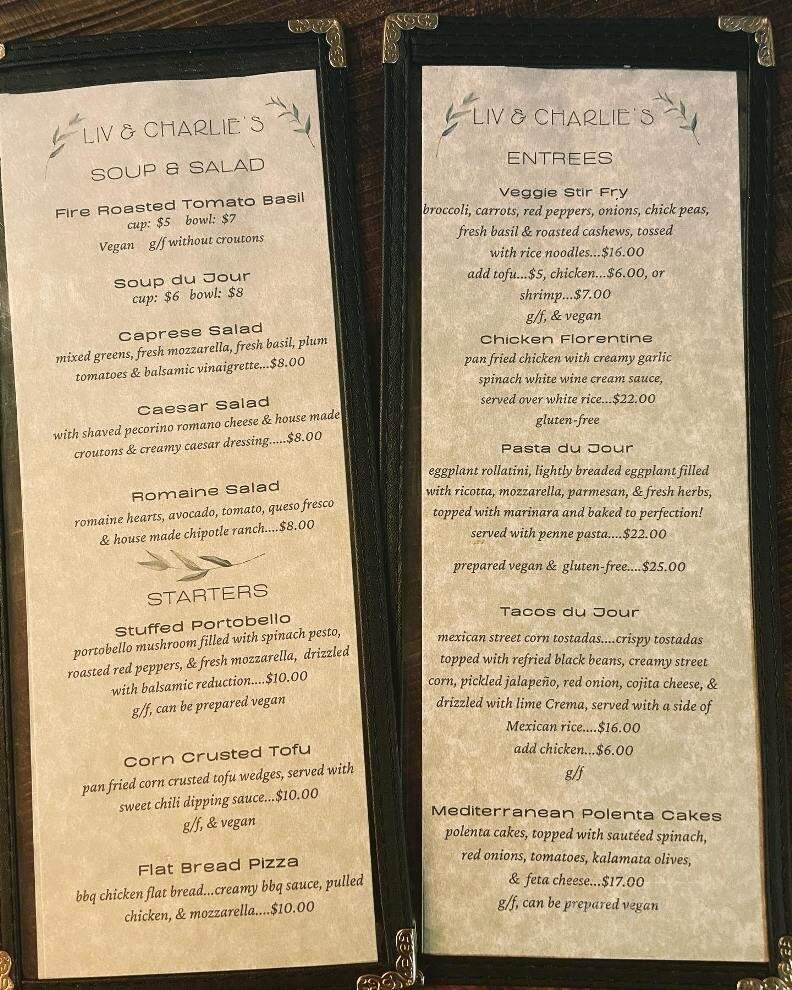 LIV & CHARLIE'S
SOUP & SALAD
Fire Roasted Tomato Basil
cup: $5 bowl: $7
Vegan g/f without croutons
Soup du Jour
cup: $6 bowl: $8
Caprese Salad
mixed greens, fresh mozzarella, fresh basil, plum
tomatoes & balsamic vinaigrette...$8.00
Caesar Salad
with shaved pecorino romano cheese & house made
croutons & creamy caesar dressing.....$8.00
Romaine Salad
romaine hearts, avocado, tomato, queso fresco
& house made chipotle ranch....$8.00
STARTERS
Stuffed Portobello
portobello mushroom filled with spinach pesto,
roasted red peppers, & fresh mozzarella, drizzled
with balsamic reduction....$10.00
g/f, can be prepared vegan
Corn Crusted Tofu
pan fried corn crusted tofu wedges, served with
sweet chili dipping sauce...$10.00
g/f, & vegan
Flat Bread Pizza
bbq chicken flat bread...creamy bbq sauce, pulled
chicken, & mozzarella....$10.00
LIV & CHARLIE'S
ENTREES
Veggie Stir Fry
broccoli, carrots, red peppers, onions, chick peas,
fresh basil & roasted cashews, tossed
with rice noodles...$16.00
add tofu...$5, chicken...$6.00, or
shrimp...$7.00
g/f, & vegan
Chicken Florentine
pan fried chicken with creamy garlic
spinach white wine cream sauce,
served over white rice...$22.00
gluten-free
Pasta du Jour
eggplant rollatini, lightly breaded eggplant filled
with ricotta, mozzarella, parmesan, & fresh herbs,
topped with marinara and baked to perfection!
served with penne pasta....$22.00
prepared vegan & gluten-free....$25.00
Tacos du Jour
mexican street corn tostadas....crispy tostadas
topped with refried black beans, creamy street
corn, pickled jalapeño, red onion, cojita cheese, &
drizzled with lime Crema, served with a side of
Mexican rice....$16.00
add chicken...$6.00
g/f
Mediterranean Polenta Cakes
polenta cakes, topped with sautéed spinach,
red onions, tomatoes, kalamata olives,
& feta cheese...$17.00
g/f, can be prepared vegan